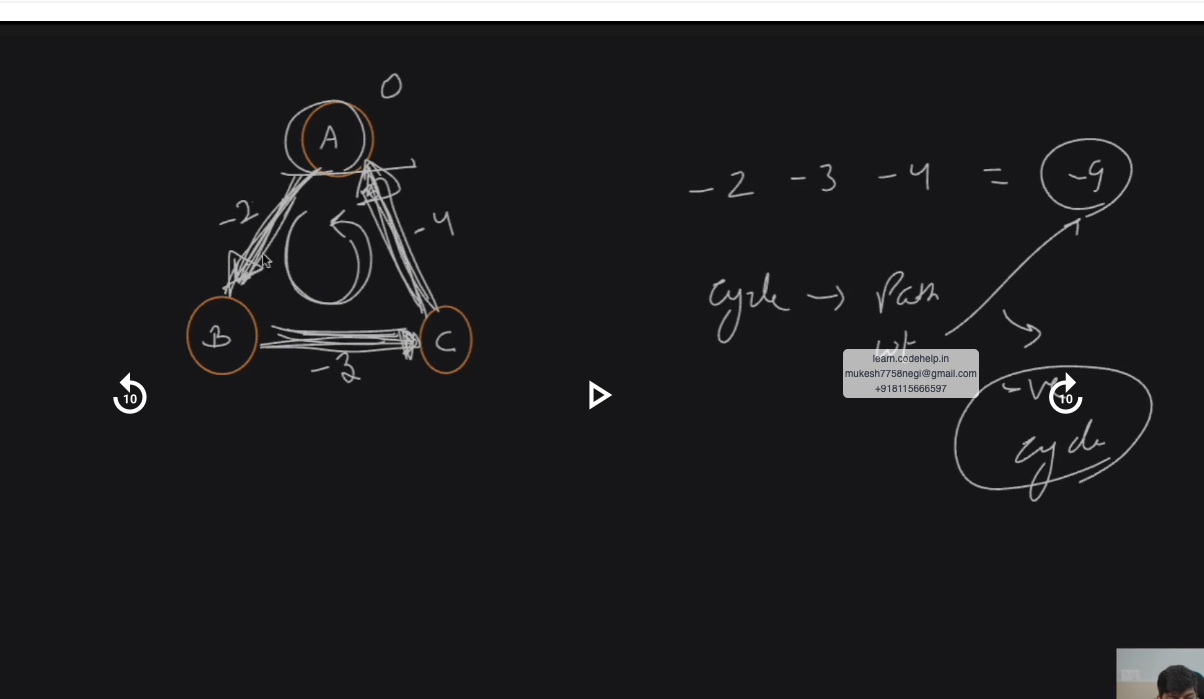 0
A
-2
-4
B
C
-3
-2 -3 -4 = -9
cycle → Path
wt
-ve
cycle
learn.codehelp.in
mukesh7758negi@gmail.com
+918115666597
10
10